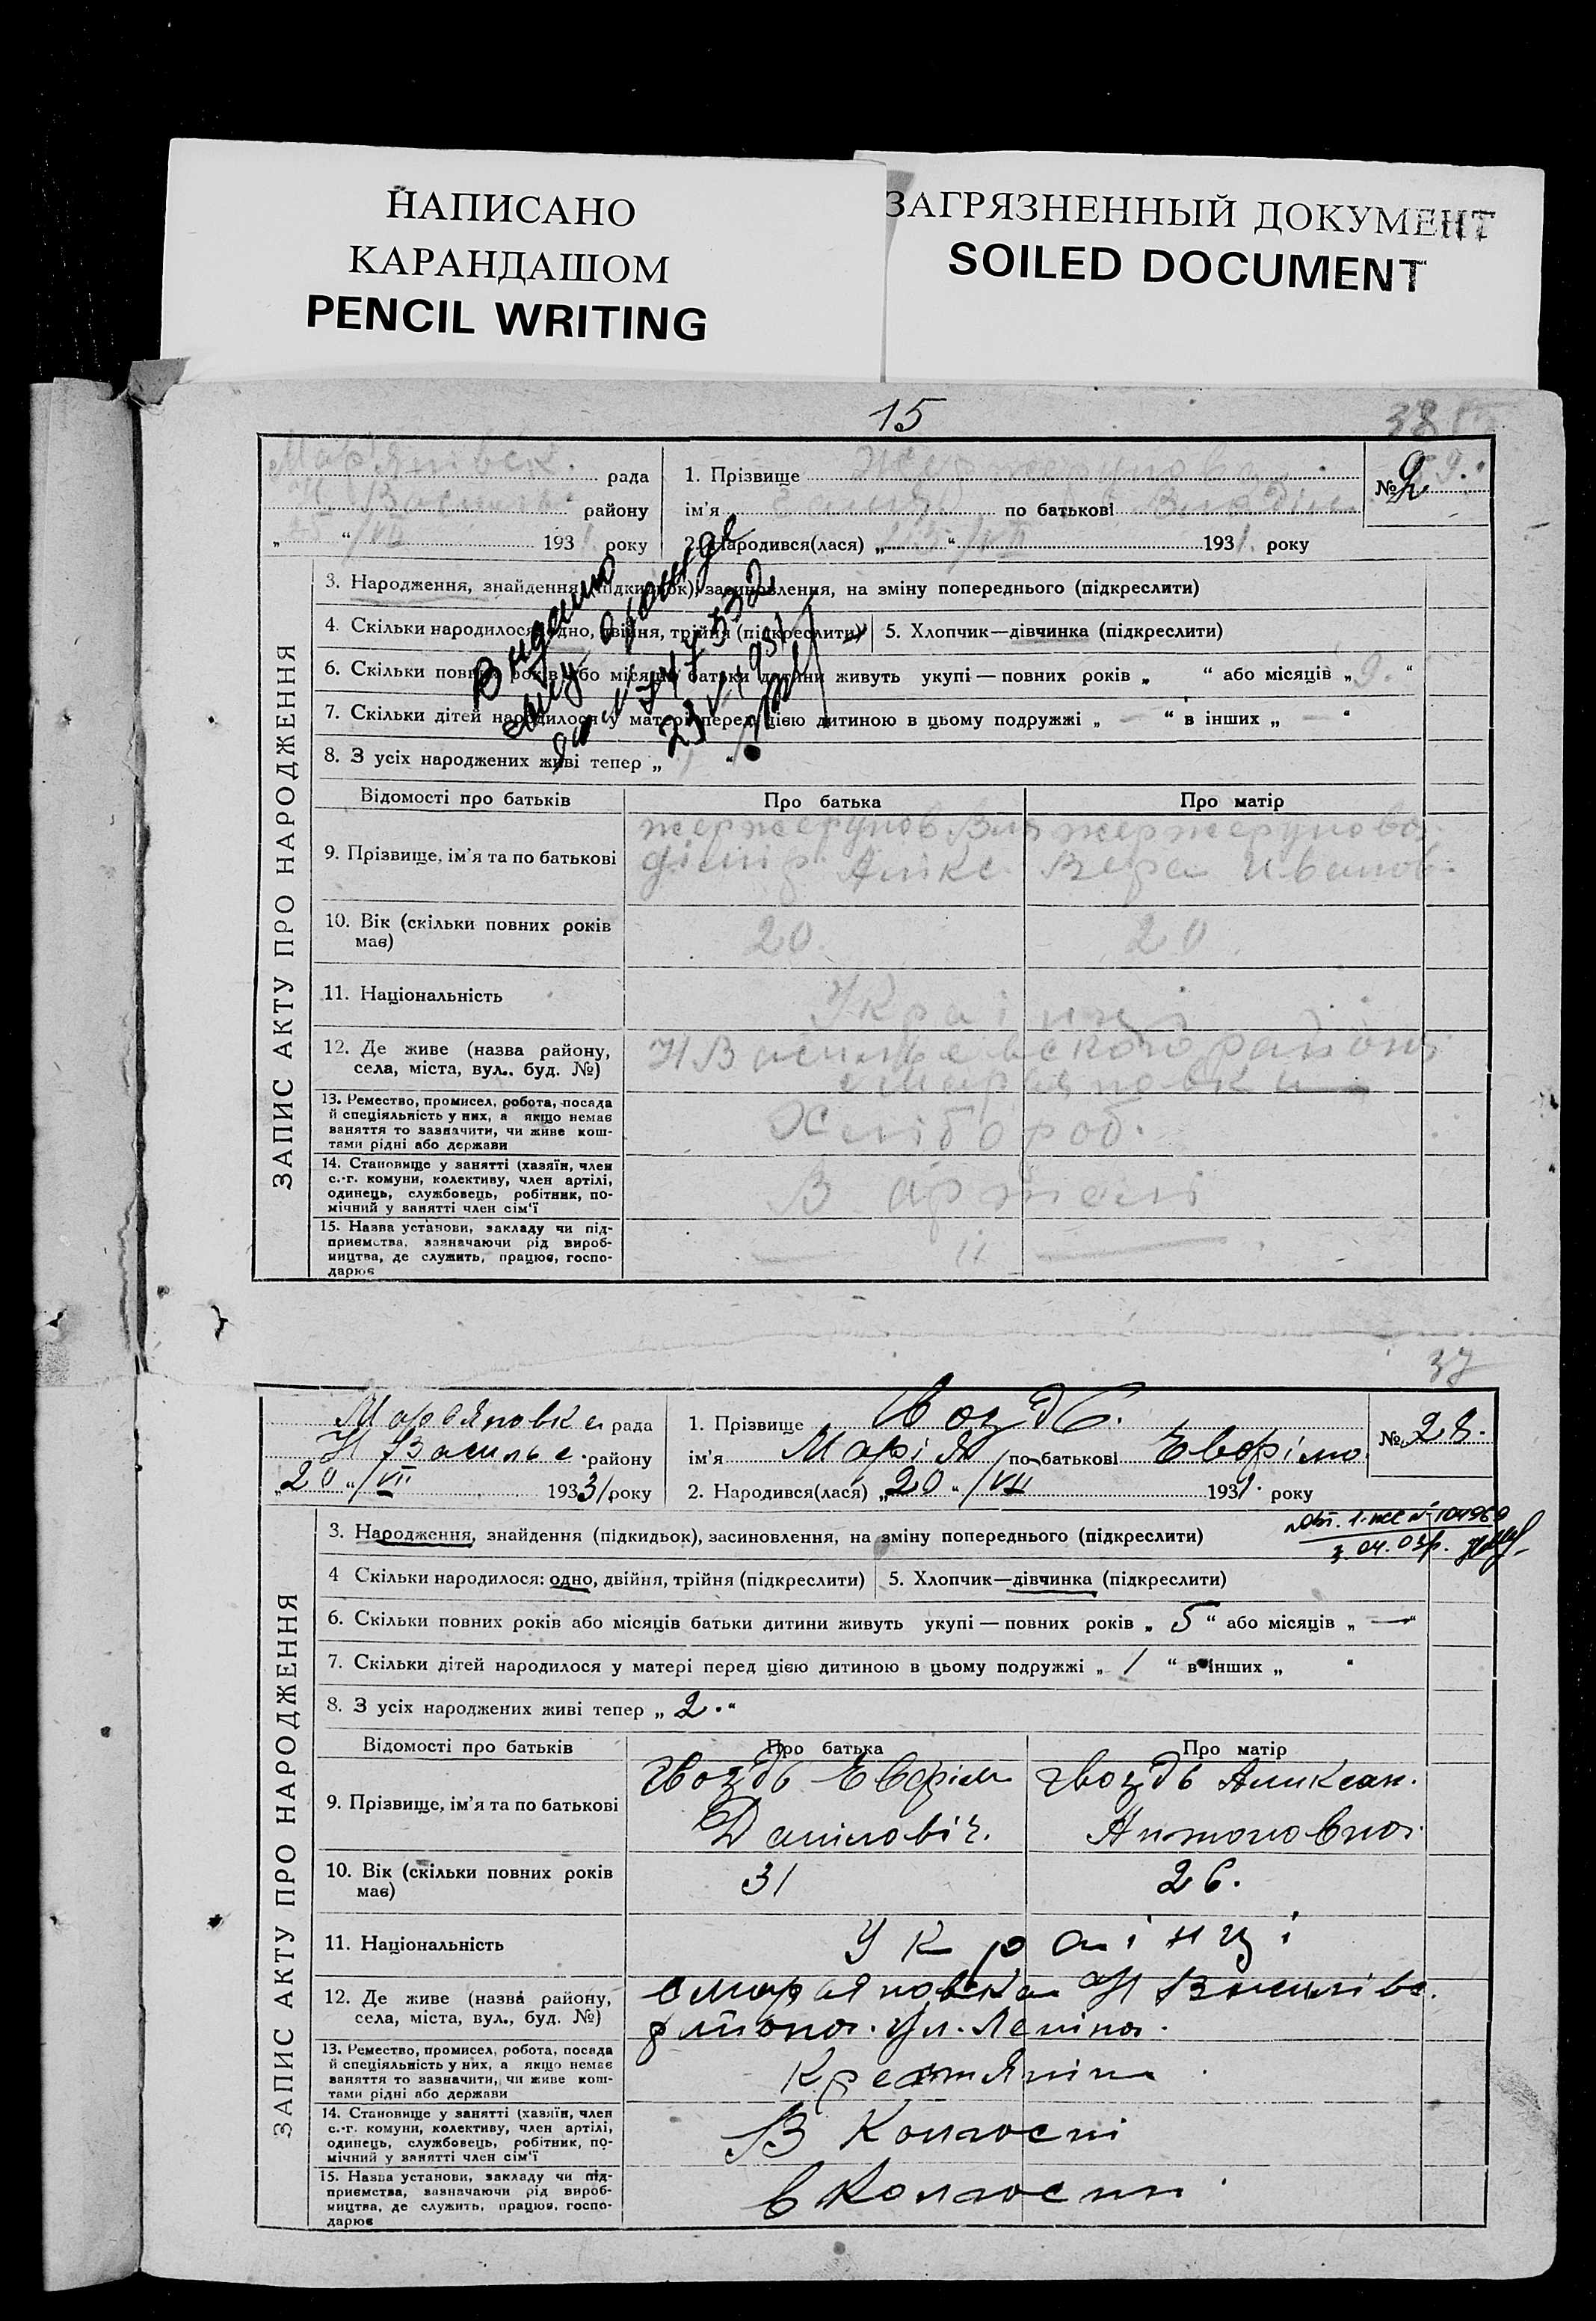 НАПИСАНО
КАРАНДАШОМ
PENCIL WRITING
ЗАГРЯЗНЕННЫЙ ДОКУМЕНТ
SOILED DOCUMENT
15
38
Мар'янівск. рада
Н Василь району
25 "/VII 1931. року
1. Прізвище Жержерунова
ім'я по батькові Владім
№
2. Народився(лася) „ "/VII 1931. року
3. Народження, знайдення (підкидьок), засиновлення, на зміну попереднього (підкреслити)
4. Скільки народилося: одно, двійня, трійня (підкреслити) 5. Хлопчик—дівчинка (підкреслити)
6. Скільки повних років або місяців батьки дитини живуть укупі — повних років „ " або місяців „ 9. "
7. Скільки дітей народилося у матері перед цією дитиною в цьому подружжі „ — " в інших „ — "
8. З усіх народжених живі тепер „ 1 "
Видано
ЗАПИС АКТУ ПРО НАРОДЖЕННЯ
Відомості про батьків Про батька Про матір
9. Прізвище, ім'я та по батькові
жержерунов Вла
дімір Алікс.
жержерунова
Вера Иванов.
10. Вік (скільки повних років
має)
20. 20.
11. Національність
Українці
12. Де живе (назва району,
села, міста, вул., буд. №)
Н Васильевского района
с Марьяновка
13. Ремество, промисел, робота, посада
й спеціяльність у них, а якщо немає
заняття то зазначити, чи живе кош-
тами рідні або держави
Хлібороб.
14. Становище у занятті (хазяїн, член
с.-г. комуни, колективу, член артілі,
одинець, службовець, робітник, по-
мічний у занятті член сім'ї
В артелі
15. Назва установи, закладу чи під-
приємства, зазначаючи рід вироб-
ництва, де служить, працює, госпо-
дарює
— " —
37
Марьяновка рада
Н Василье. району
„20"/VII 1931 року
1. Прізвище Гвоздь.
ім'я Марія по батькові Евфімо.
№ 28.
2. Народився(лася) „20"/VII 1931. року
3. Народження, знайдення (підкидьок), засиновлення, на зміну попереднього (підкреслити)
4 Скільки народилося: одно, двійня, трійня (підкреслити) 5. Хлопчик—дівчинка (підкреслити)
6. Скільки повних років або місяців батьки дитини живуть укупі — повних років „ 5 " або місяців „ — "
7. Скільки дітей народилося у матері перед цією дитиною в цьому подружжі „ 1 " в інших „ "
8. З усіх народжених живі тепер „ 2. "
ЗАПИС АКТУ ПРО НАРОДЖЕННЯ
Відомості про батьків Про батька Про матір
9. Прізвище, ім'я та по батькові
Гвоздь Евфім
Даніловіч.
Гвоздь Аликсан.
Антоновна.
10. Вік (скільки повних років
має)
31 26.
11. Національність
Українці
12. Де живе (назва району,
села, міста, вул., буд. №)
с Марьяновка Н Василівс.
района. ул. Леніна.
13. Ремество, промисел, робота, посада
й спеціяльність у них, а якщо немає
заняття то зазначити, чи живе кош-
тами рідні або держави
Крестянін
14. Становище у занятті (хазяїн, член
с.-г. комуни, колективу, член артілі,
одинець, службовець, робітник, по-
мічний у занятті член сім'ї
В Колгоспі
15. Назва установи, закладу чи під-
приємства, зазначаючи рід вироб-
ництва, де служить, працює, госпо-
дарює
в Колгоспи